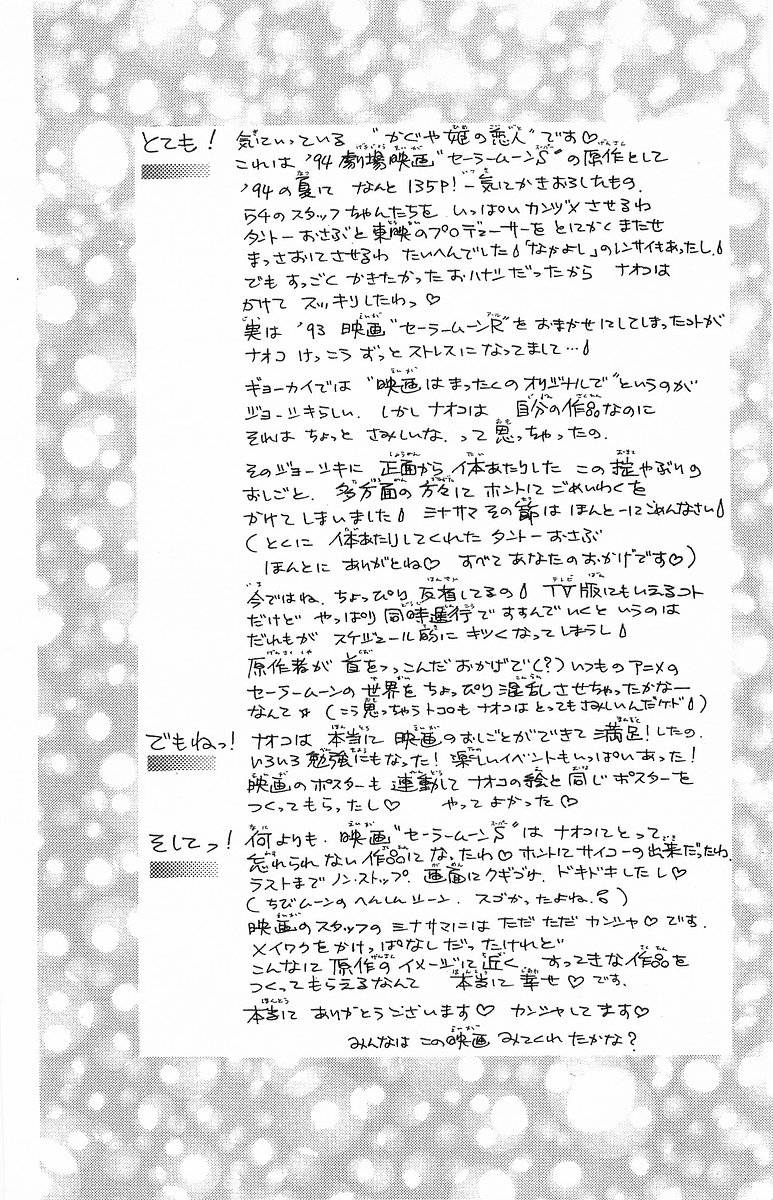 とても！ 気にいっている “かぐや姫の恋人”です♡
これは '94 劇場映画“セーラームーンS”の原作として
'94の夏に なんと135P！一気にかきおろしたもの。
54のスタッフちゃんたちを いっぱいカンヅメさせるわ
タントーおさぶと東映のプロデューサーを とにかくまたせ
まっさおにさせるわ たいへんでした「なかよし」のレンサイもあったし。
でも すっごく かきたかったおハナシだったから ナオコは
かけて スッキリしたわっ♡
実は '93 映画“セーラームーンR”を おまかせにしてしまったコトが
ナオコ けっこう ずっとストレスになってまして…
ギョーカイでは “映画はまったくのオリジナルで”というのが
ジョーシキらしい。しかしナオコは 自分の作品なのに
それは ちょっと さみしいな。って思っちゃったの。
そのジョーシキに 正面から 体あたりした この掟やぶりの
おしごと。 多方面の方々に ホントにごめいわくを
かけてしまいました ミナサマ その節は ほんとーにごめんなさい
（とくに 体あたりしてくれた タントーおさぶ
ほんとに ありがとね♡ すべてあなたのおかげです♡）
今ではね、ちょっぴり 反省してるの TV版にもいえるコト
だけど やっぱり同時進行で すすんでいくと いうのは
だれもが スケジュール的に キツくなってしまうし
原作者が 首をつっこんだおかげで（？）いつものアニメの
セーラームーンの世界を ちょっぴり混乱させちゃったかなー
なんて☆ （こう思っちゃうトコロも ナオコはとってもさみしいんだケド）
でもねっ！ ナオコは 本当に 映画のおしごとができて 満足！したの。
いろいろ勉強にもなった！楽しいイベントもいっぱいあった！
映画のポスターも 連動して ナオコの絵と同じポスターを
つくってもらったし♡ やってよかった♡
そしてっ！ 何よりも、映画“セーラームーンS”は ナオコにとって
忘れられない作品になったわ♡ホントにサイコーの出来だったわ。
ラストまでノン・ストップ。画面にクギづけ、ドキドキしたし♡
（ちびムーンのへんしんシーン、スゴかったよね。）
映画のスタッフのミナサマには ただただ カンシャ♡です。
メイワクをかけっぱなしだったけれど
こんなに原作のイメージに近く すってきな作品を
つくってもらえるなんて 本当に幸せ♡です。
本当に ありがとうございます♡ カンシャしてます♡
みんなは この映画 みてくれたかな？